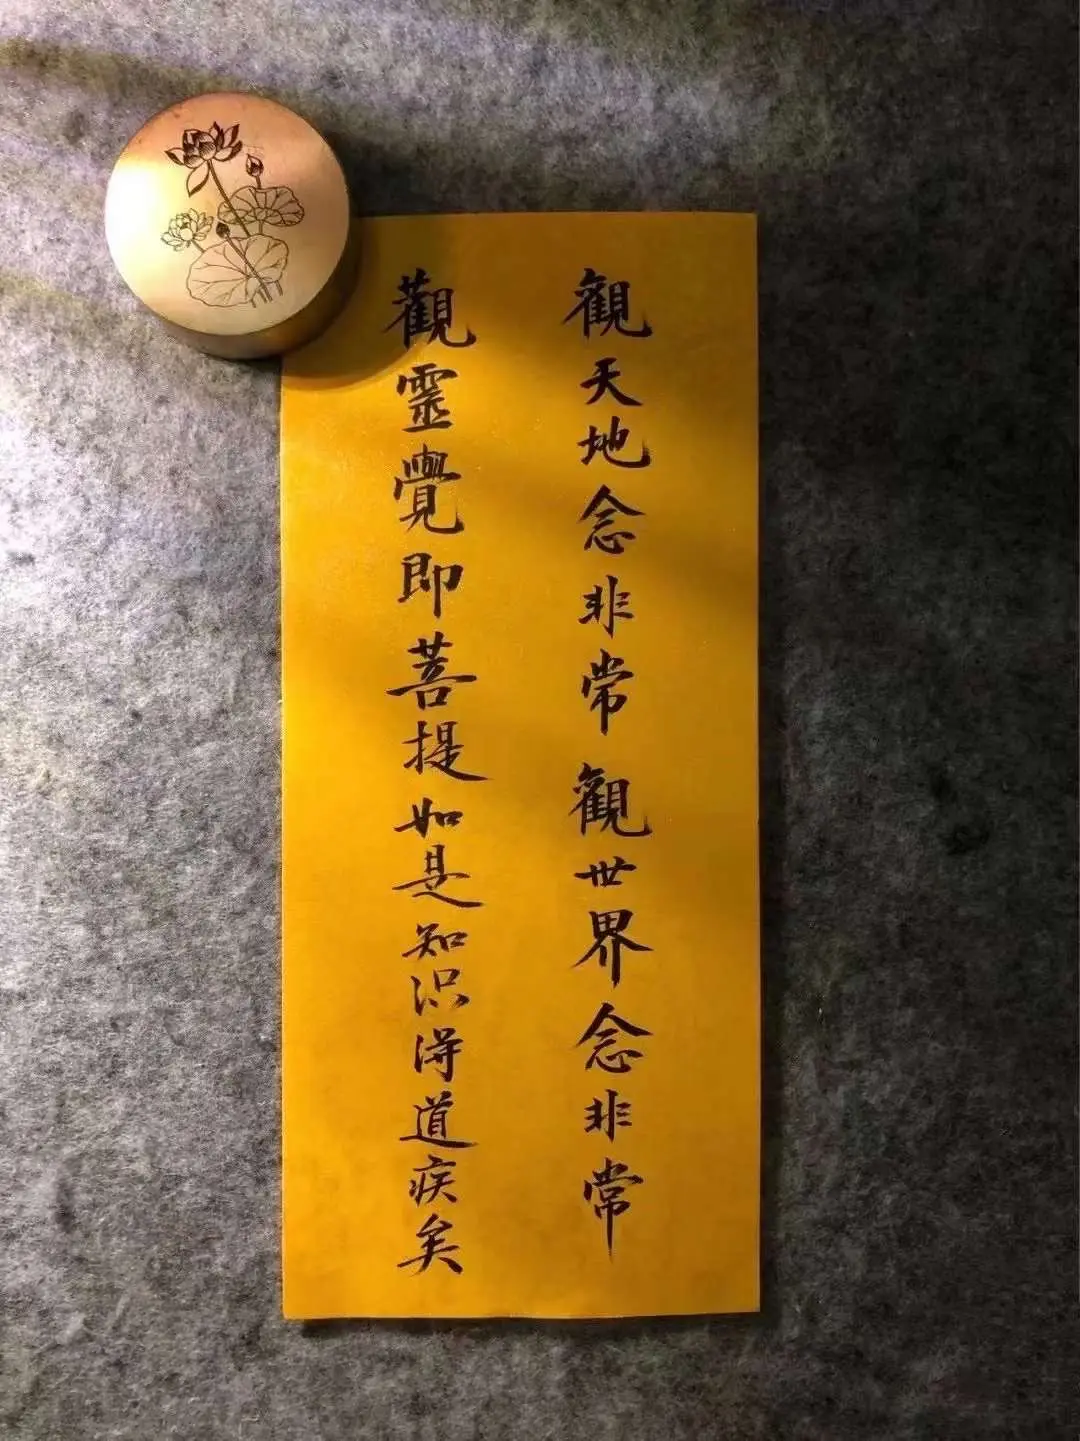 觀天地念非常觀世界念非常
觀靈覺即菩提如是知识得道疾矣